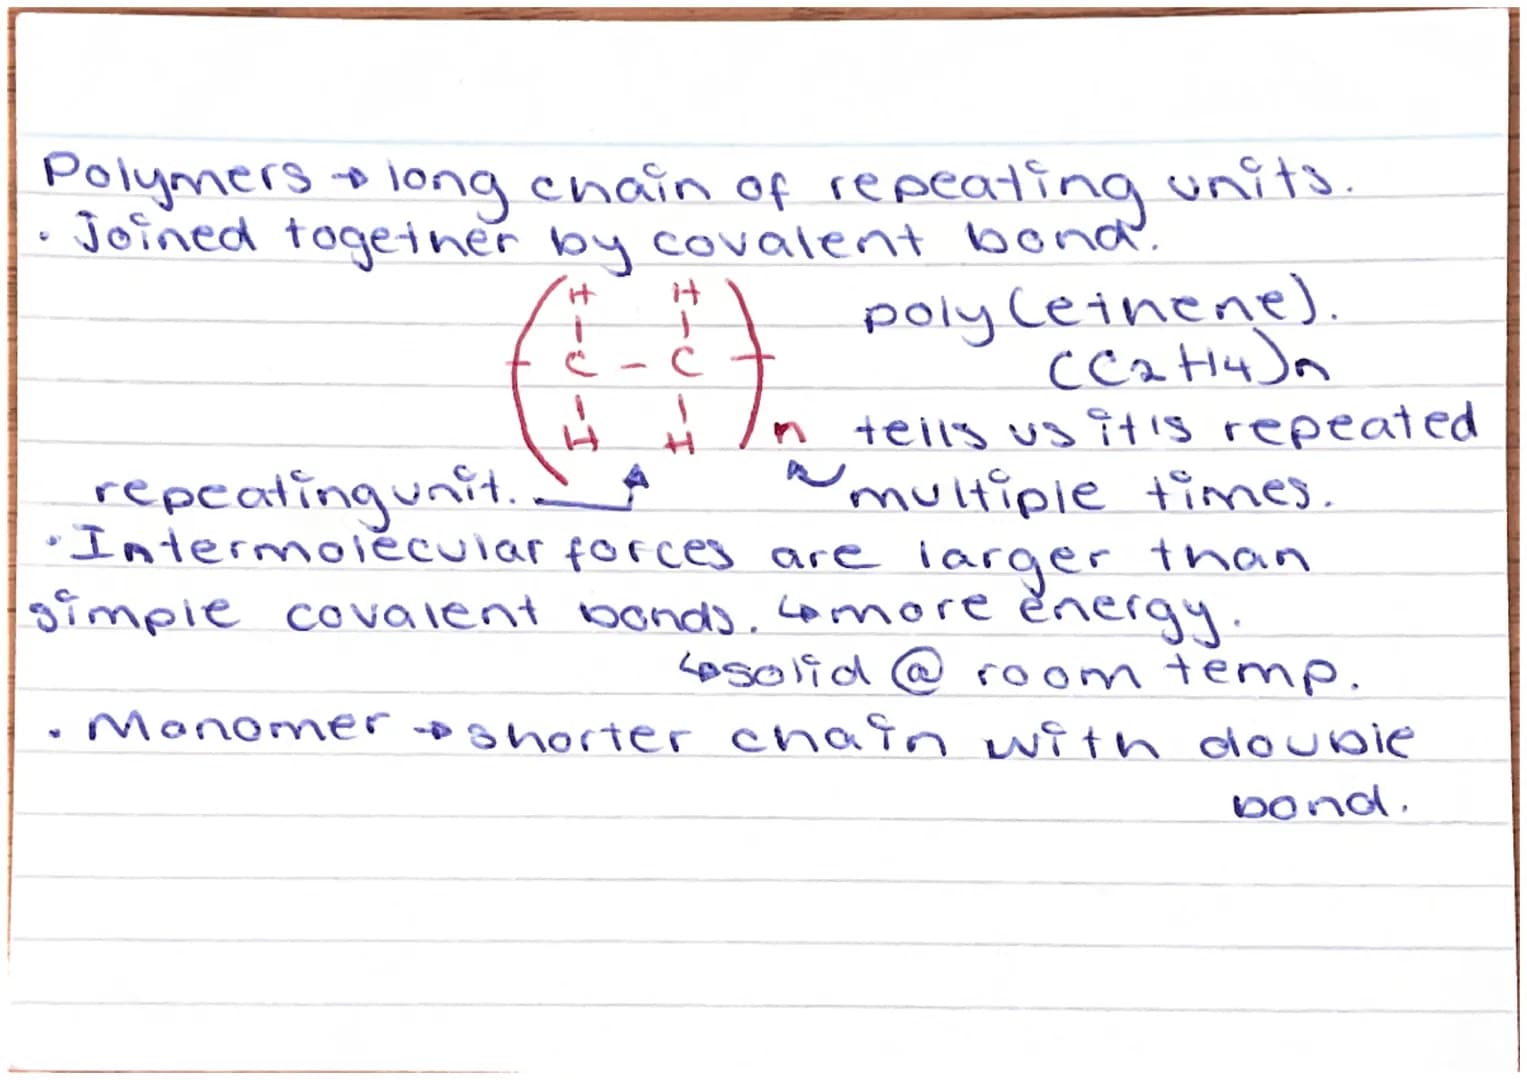 Polymers → long chain of repeating units.
• Joined together by covalent bond.
H H
poly(ethene).
C - C
(C2H4)n
H H
n tells us it's repeated
repeating unit.
multiple times.
• Intermolecular forces are larger than
simple covalent bonds. ↳ more energy.
↳ solid @ room temp.
• Monomer → shorter chain with double
bond.